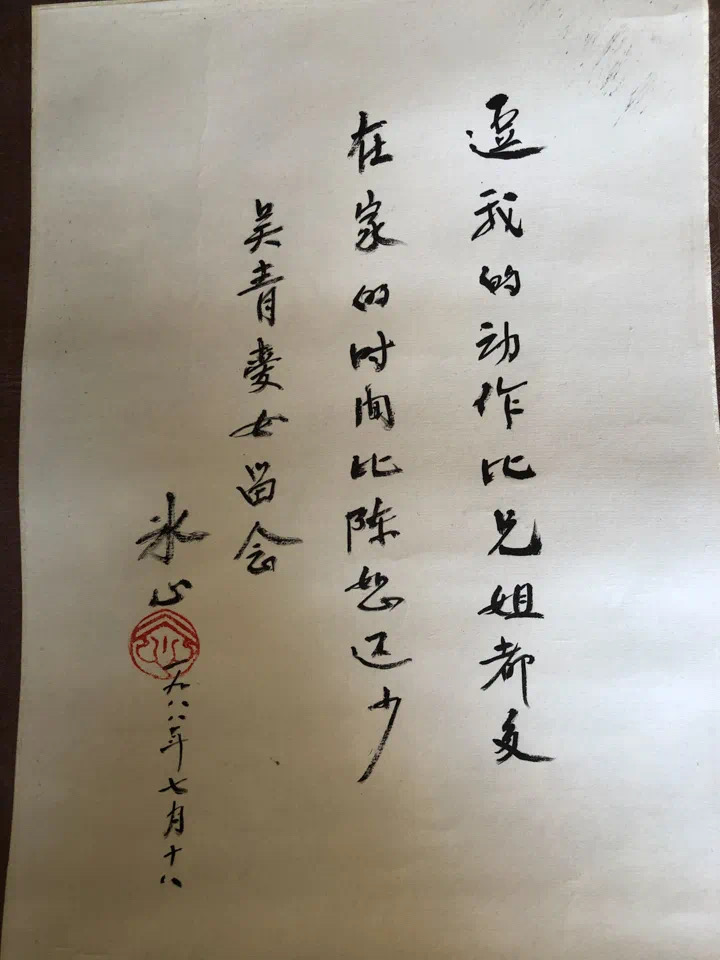 逗我的动作比兄姐都多
在家的时间比陈恕还少
吴青爱女留念
冰心
一九八八年七月十八